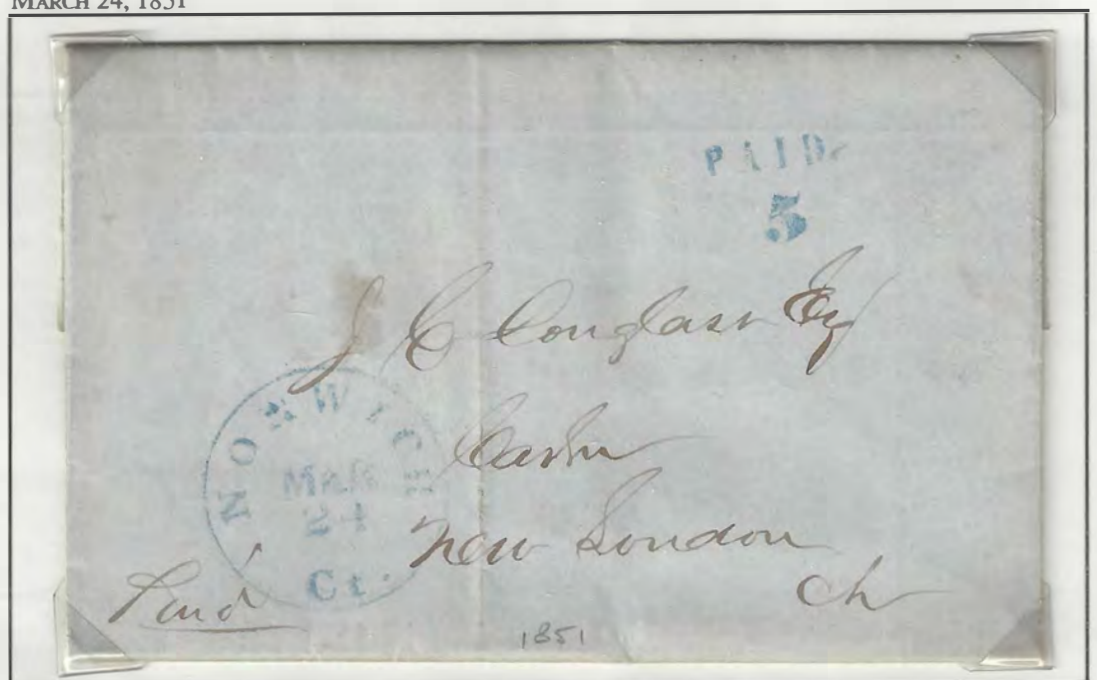 MARCH 24, 1851
PAID
5
J C Douglass Esq
Cashr
New London
Ct
NORWICH
MAR
24
Ct.
Paid
1851